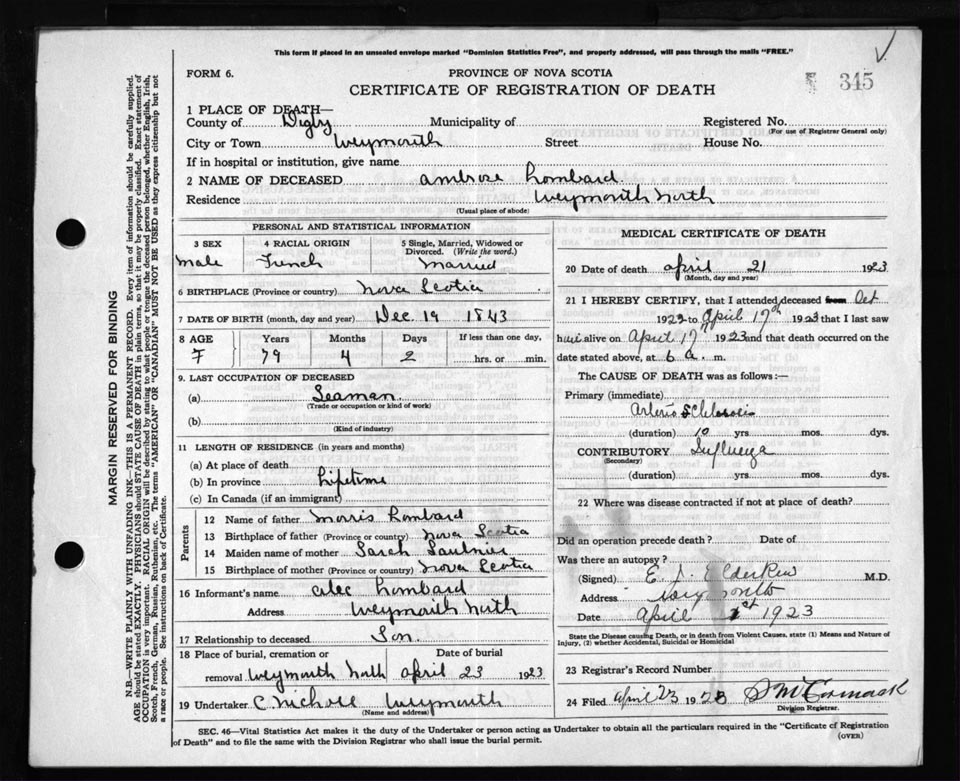 This form if placed in an unsealed envelope marked "Dominion Statistics Free", and properly addressed, will pass through the mails "FREE."
FORM 6.
PROVINCE OF NOVA SCOTIA
345
CERTIFICATE OF REGISTRATION OF DEATH
1 PLACE OF DEATH—
County of Digby Municipality of Registered No.
(For use of Registrar General only)
City or Town Weymouth Street House No.
If in hospital or institution, give name
2 NAME OF DECEASED Ambrose Lombard.
Residence Weymouth North
(Usual place of abode)
PERSONAL AND STATISTICAL INFORMATION
3 SEX 4 RACIAL ORIGIN 5 Single, Married, Widowed or Divorced. (Write the word.)
Male French Married
6 BIRTHPLACE (Province or country) Nova Scotia
7 DATE OF BIRTH (month, day and year) Dec. 19 1843
8 AGE Years Months Days If less than one day,
79 4 2 hrs. or min.
9. LAST OCCUPATION OF DECEASED
(a) Seaman.
(Trade or occupation or kind of work)
(b)
(Kind of industry)
11 LENGTH OF RESIDENCE (in years and months)
(a) At place of death
(b) In province Lifetime
(c) In Canada (if an immigrant)
Parents
12 Name of father Morris Lombard
13 Birthplace of father (Province or country) Nova Scotia
14 Maiden name of mother Sarah Saulnier
15 Birthplace of mother (Province or country) Nova Scotia
16 Informant's name Alec Lombard
Address Weymouth North
17 Relationship to deceased Son.
18 Place of burial, cremation or Date of burial
removal Weymouth North April 23 1923
19 Undertaker C Nichols Weymouth
(Name and address)
MEDICAL CERTIFICATE OF DEATH
20 Date of death April 21 1923
(Month, day and year)
21 I HEREBY CERTIFY, that I attended deceased from Oct
1922 to April 17th 1923 that I last saw
him alive on April 17 1923 and that death occurred on the
date stated above, at 6 a. m.
The CAUSE OF DEATH was as follows:—
Primary (immediate)
Arterio
(duration) 10 yrs. mos. dys.
CONTRIBUTORY Influenza
(Secondary)
(duration) yrs. mos. dys.
22 Where was disease contracted if not at place of death?
Did an operation precede death? Date of
Was there an autopsy?
(Signed) E. J. Elderkin M.D.
Address Weymouth
Date April 1923
State the Disease causing Death, or in death from Violent Causes, state (1) Means and Nature of
Injury, (2) whether Accidental, Suicidal or Homicidal
23 Registrar's Record Number
24 Filed April 23 1923 McCormack
Division Registrar.
SEC. 46—Vital Statistics Act makes it the duty of the Undertaker or person acting as Undertaker to obtain all the particulars required in the "Certificate of Registration
of Death" and to file the same with the Division Registrar who shall issue the burial permit.
(OVER)
MARGIN RESERVED FOR BINDING
N.B.—WRITE PLAINLY WITH UNFADING INK—THIS IS A PERMANENT RECORD. Every item of information should be carefully supplied.
AGE should be stated EXACTLY. PHYSICIANS should STATE CAUSE OF DEATH in plain terms, so that it may be properly classified. Exact statement of
OCCUPATION is very important. RACIAL ORIGIN will be described by stating to what people or tongue the deceased person belonged, whether English, Irish,
Scotch, French, German, Russian, Ruthenian, etc. The terms "AMERICAN" OR "CANADIAN" MUST NOT BE USED as they express citizenship but not
a race or people. See instructions on back of Certificate.